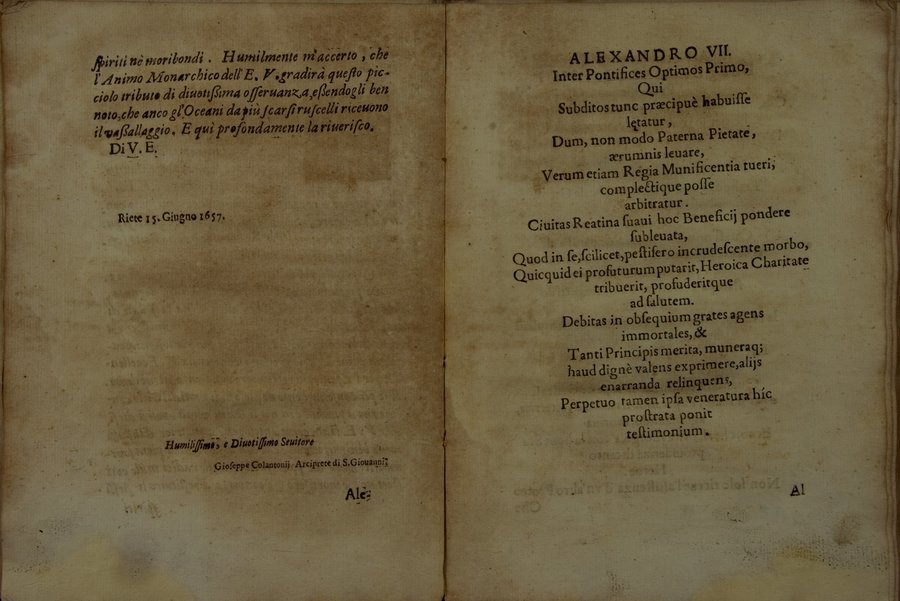 ſpiriti nè moribondi. Humilmente m'accerto, che
l'Animo Monarchico dell'E. V. gradirà queſto pic-
ciolo tributo di diuotiſſima oſſeruanza, eſſendogli ben
noto, che anco gl'Oceani da più ſcarſi ruſcelli riceuono
il vaſſallaggio. E qui profondamente la riueriſco.
Di V. E.
Riete 15. Giugno 1657.
Humiliſſimo, e Diuotiſſimo Seuitore
Gioſeppe Colantonij Arciprete di S. Giouanni
Ale-
ALEXANDRO VII.
Inter Pontifices Optimos Primo,
Qui
Subditos tunc præcipuè habuiſſe
lętatur,
Dum, non modo Paterna Pietate,
ærumnis leuare,
Verum etiam Regia Munificentia tueri,
complectique poſſe
arbitratur.
Ciuitas Reatina ſuaui hoc Beneficij pondere
ſubleuata,
Quod in ſe, ſcilicet, peſtifero incrudeſcente morbo,
Quicquid ei profuturum putarit, Heroica Charitate
tribuerit, profuderitque
ad ſalutem.
Debitas in obſequium grates agens
immortales, &
Tanti Principis merita, muneraq;
haud dignè valens exprimere, alijs
enarranda relinquens,
Perpetuo tamen ipſa veneratura hic
proſtrata ponit
teſtimonium.
Al